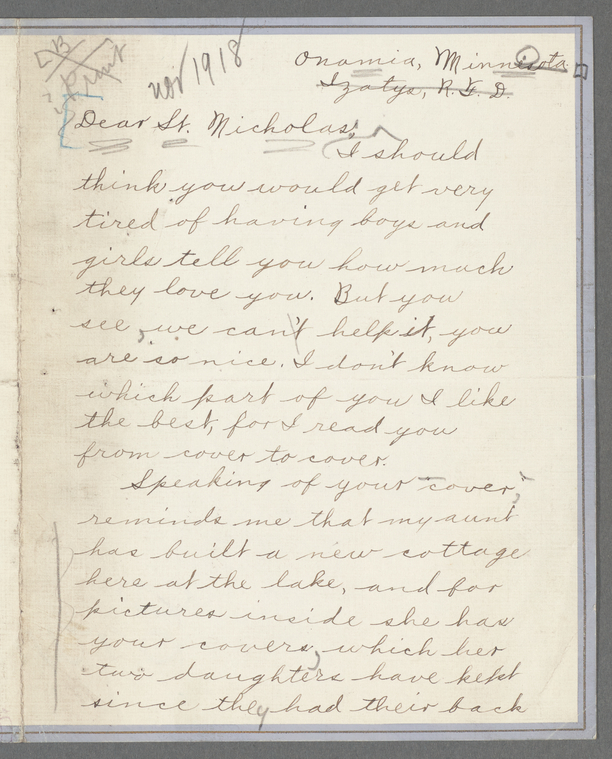 B
Print
Nov 1918
Onamia, Minnesota.
Izatys, R. F. D.
Dear St. Nicholas:
I should
think you would get very
tired of having boys and
girls tell you how much
they love you. But you
see, we can't help it, you
are so nice. I don't know
which part of you I like
the best, for I read you
from cover to cover.
Speaking of your cover,
reminds me that my aunt
has built a new cottage
here at the lake, and for
pictures inside she has
your covers, which her
two daughters have kept
since they had their back